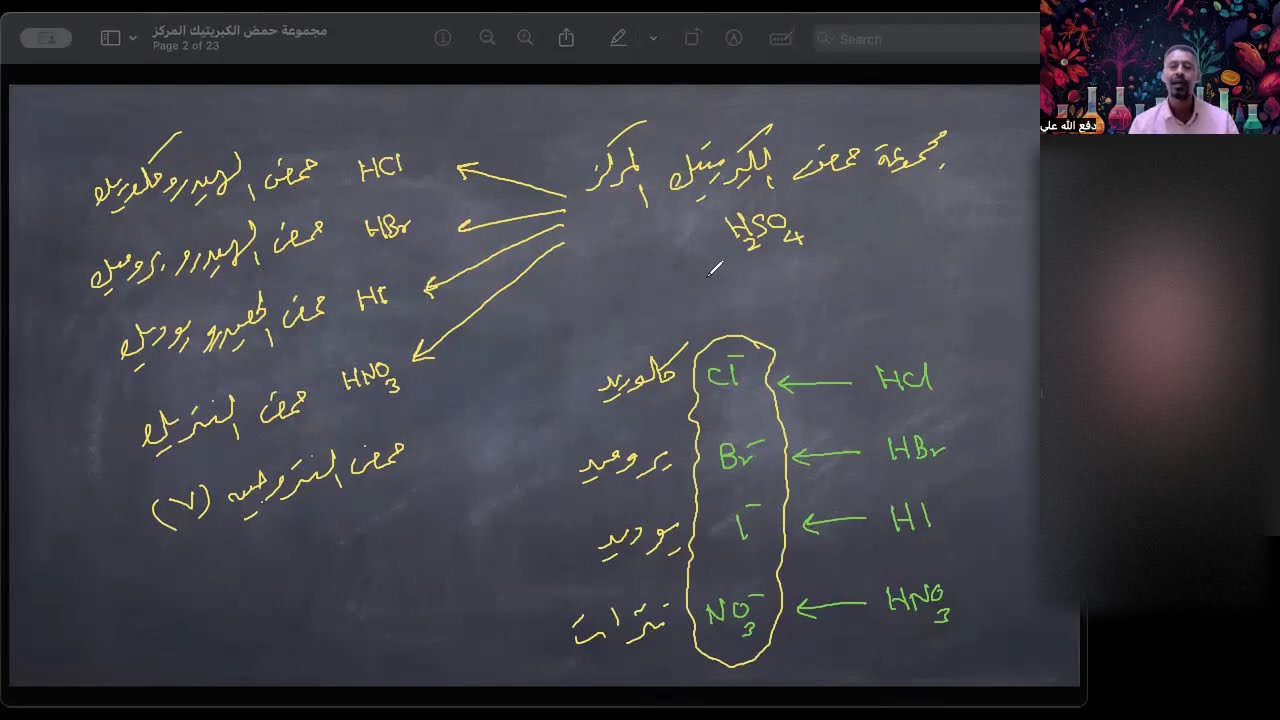 مجموعة حمض الكبريتيك المركز
Page 2 of 23
Search
دفع الله علي
مجموعة حمض الكبريتيك المركز
H₂SO₄
HCl حمض الهيدروكلوريك
HBr حمض الهيدروبروميك
HI حمض الهيدرويوديك
HNO₃ حمض النتريك
حمض النتروجيه (V)
HCl ← Cl⁻ كلوريد
HBr ← Br⁻ بروميد
HI ← I⁻ يوديد
HNO₃ ← NO₃⁻ نترات